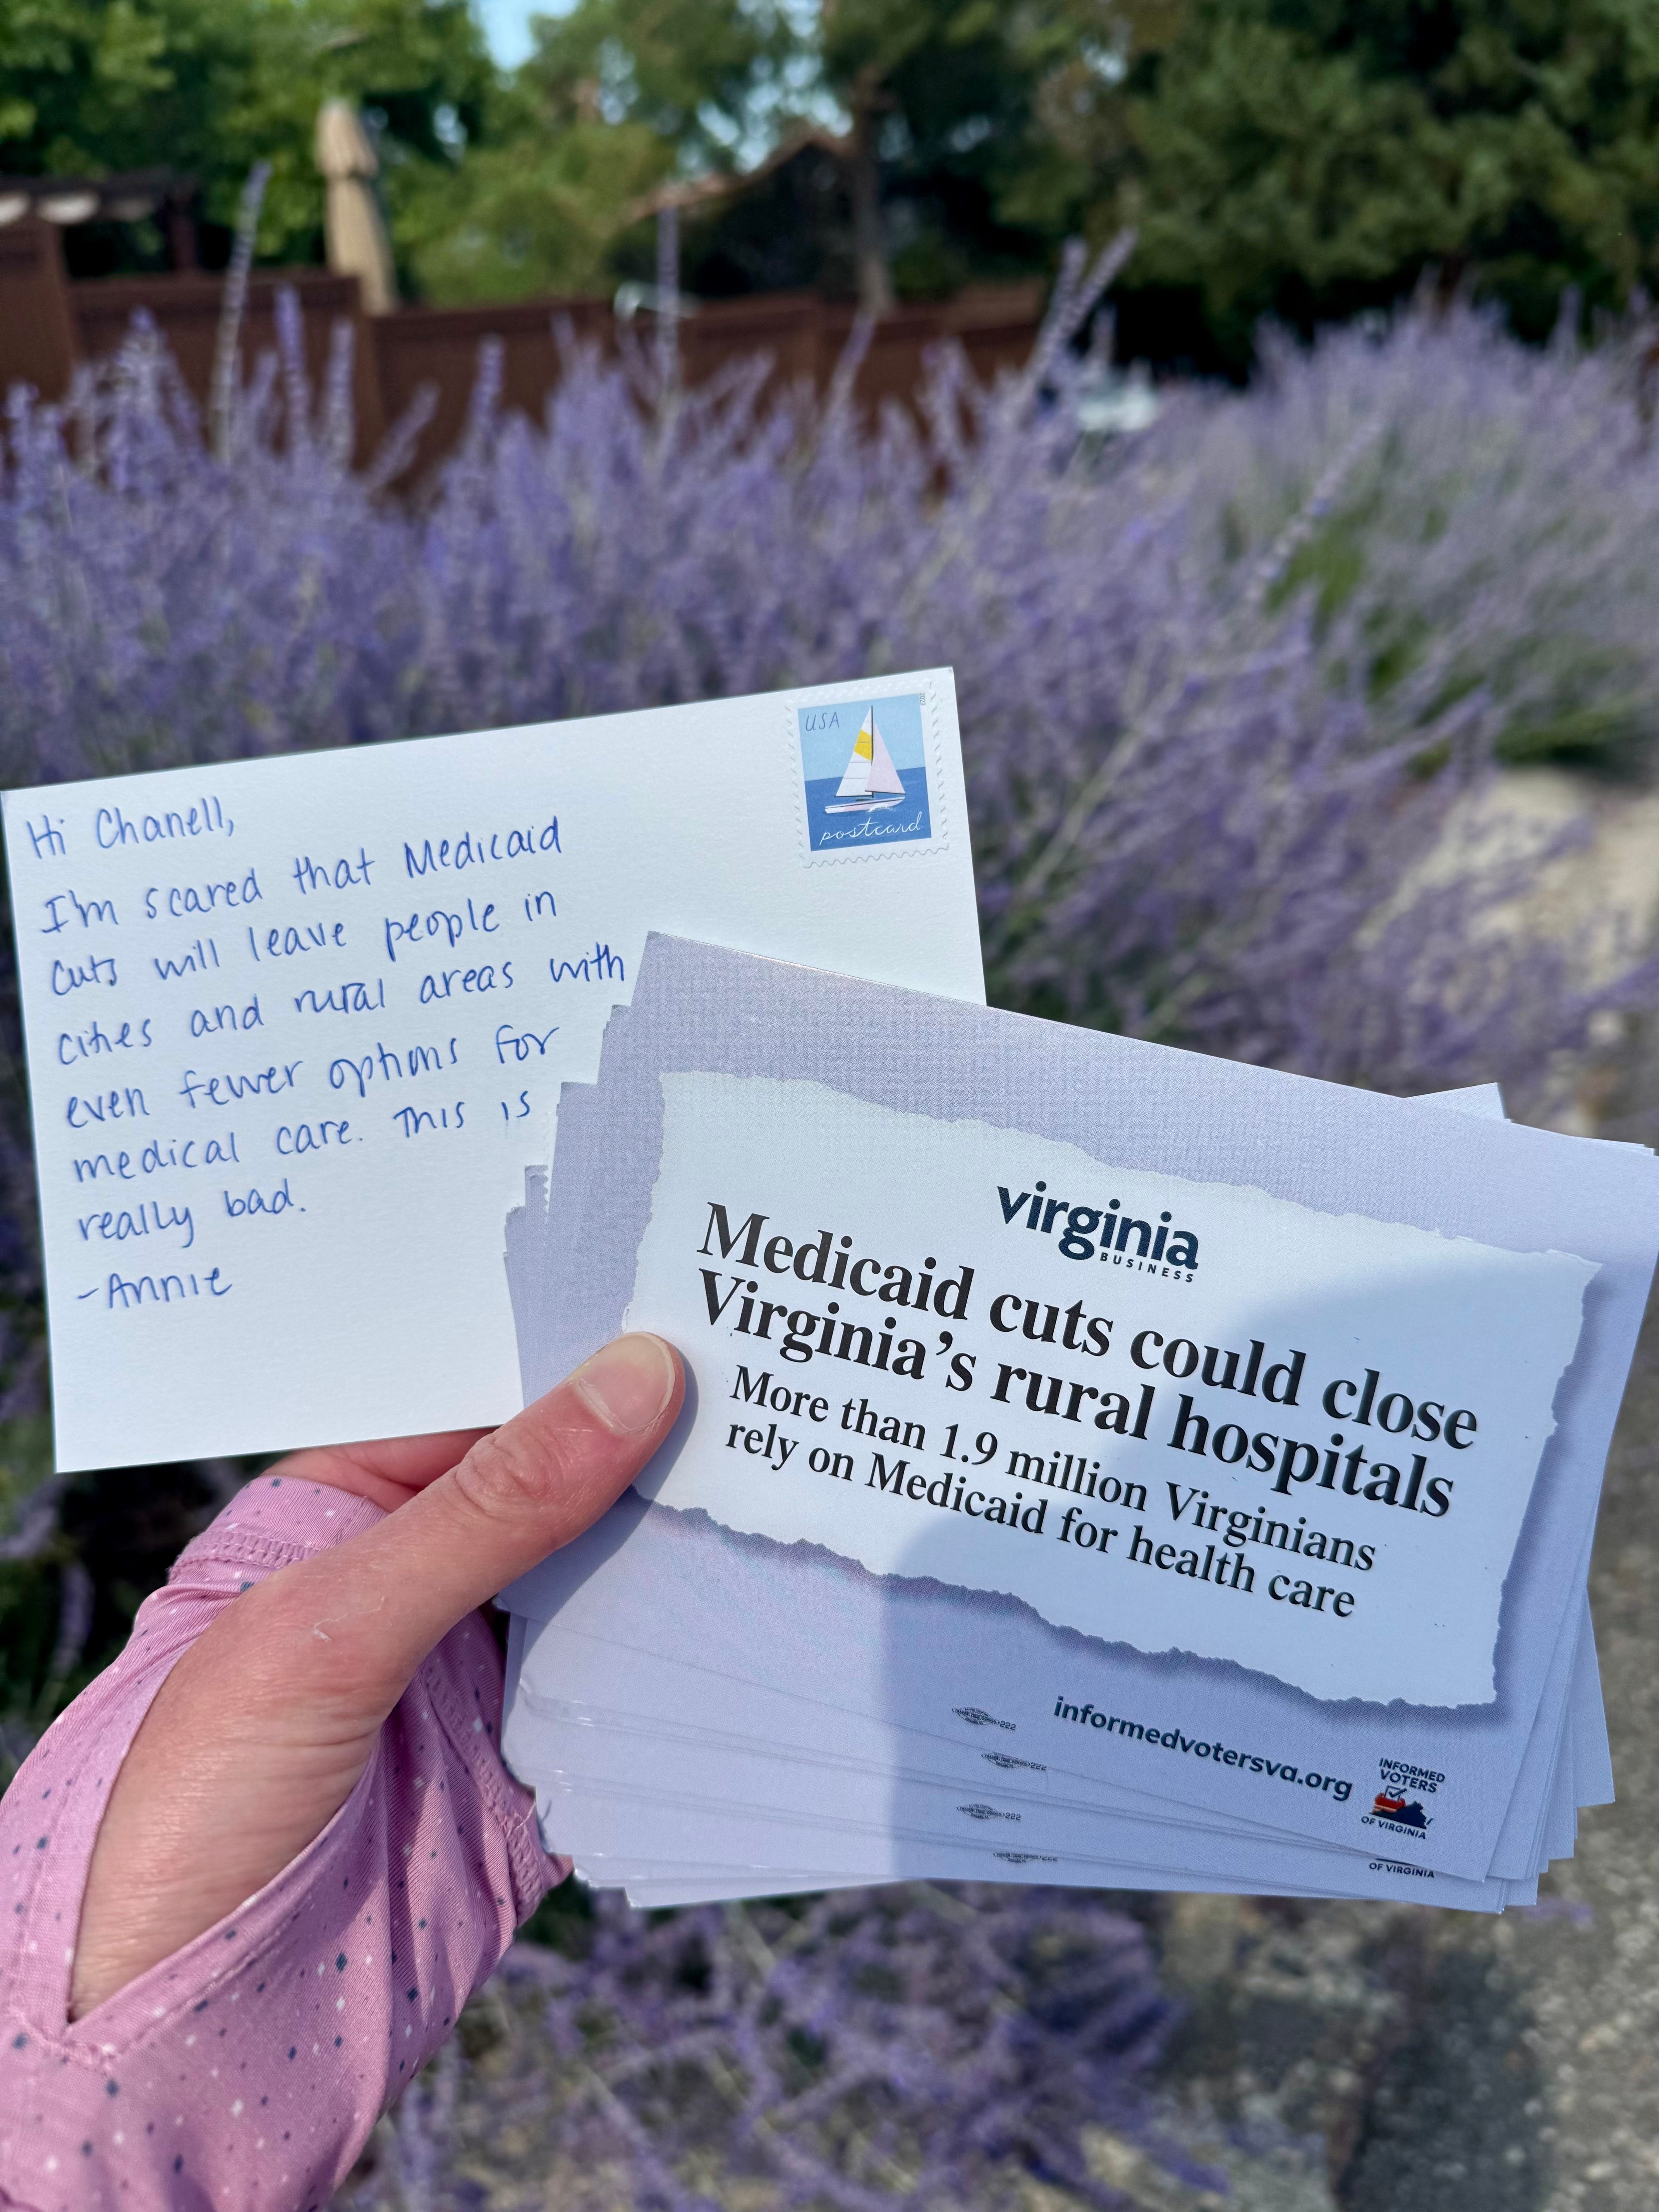 Hi Chanell,
I'm scared that Medicaid
cuts will leave people in
cities and rural areas with
even fewer options for
medical care. This is
really bad.
-Annie
USA
postcard
virginia
BUSINESS
Medicaid cuts could close
Virginia's rural hospitals
More than 1.9 million Virginians
rely on Medicaid for health care
informedvotersva.org
INFORMED
VOTERS
OF VIRGINIA
222
222
222
222
OF VIRGINIA